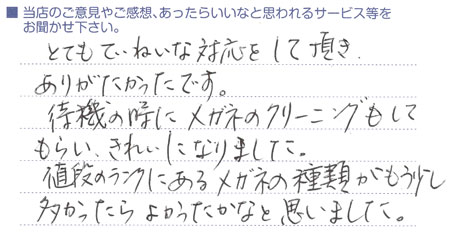 ■ 当店のご意見やご感想、あったらいいなと思われるサービス等を
お聞かせ下さい。
とてもていねいな対応をして頂き
ありがたかったです。
待機の時にメガネのクリーニングもして
もらい、きれいになりました。
値段のランクにあるメガネの種類がもう少し
多かったらよかったかなと思いました。